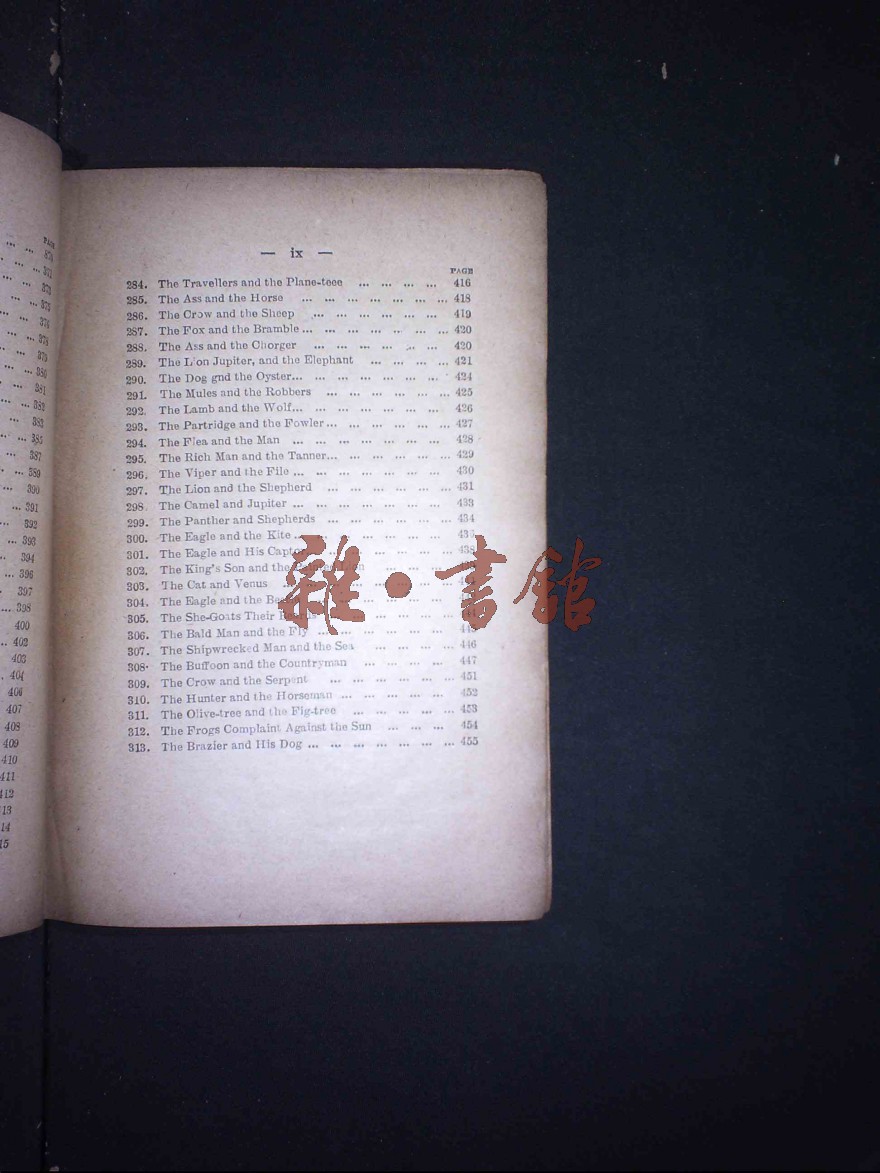 PAGE
370
371
373
375
376
378
379
380
381
382
383
385
387
389
390
391
392
393
394
396
397
398
400
402
403
404
406
407
408
409
410
411
412
13
14
15
— ix —
PAGE
284. The Travellers and the Plane-teee ... ... ... ... 416
285. The Ass and the Horse ... ... ... ... ... ... ... 418
286. The Crow and the Sheep ... ... ... ... ... ... 419
287. The Fox and the Bramble ... ... ... ... ... ... ... 420
288. The Ass and the Chorger ... ... ... ... ... ... 420
289. The Lion Jupiter, and the Elephant ... ... ... ... 421
290. The Dog gnd the Oyster... ... ... ... ... ... ... 424
291. The Mules and the Robbers ... ... ... ... ... ... 425
292. The Lamb and the Wolf... ... ... ... ... ... ... 426
293. The Partridge and the Fowler ... ... ... ... ... ... 427
294. The Flea and the Man ... ... ... ... ... ... ... 428
295. The Rich Man and the Tanner... ... ... ... ... ... 429
296. The Viper and the File ... ... ... ... ... ... ... 430
297. The Lion and the Shepherd ... ... ... ... ... ... 431
298. The Camel and Jupiter ... ... ... ... ... ... ... 433
299. The Panther and Shepherds ... ... ... ... ... ... 434
300. The Eagle and the Kite ... ... ... ... ... ...
301. The Eagle and His Captor ... ... ... ... ... 438
302. The King's Son and the Lion ... ... ...
303. The Cat and Venus ... ... ... ... ... ...
304. The Eagle and the ... ... ... ... ...
305. The She-Goats Their ... ... ... ...
306. The Bald Man and the Fly ... ... ... ... ... ... 445
307. The Shipwrecked Man and the Sea ... ... ... ... ... 446
308. The Buffoon and the Countryman ... ... ... ... 447
309. The Crow and the Serpent ... ... ... ... ... ... 451
310. The Hunter and the Horseman ... ... ... ... ... 452
311. The Olive-tree and the Fig-tree ... ... ... ... ... 453
312. The Frogs Complaint Against the Sun ... ... ... 454
313. The Brazier and His Dog ... ... ... ... ... ... ... 455
雜·書館